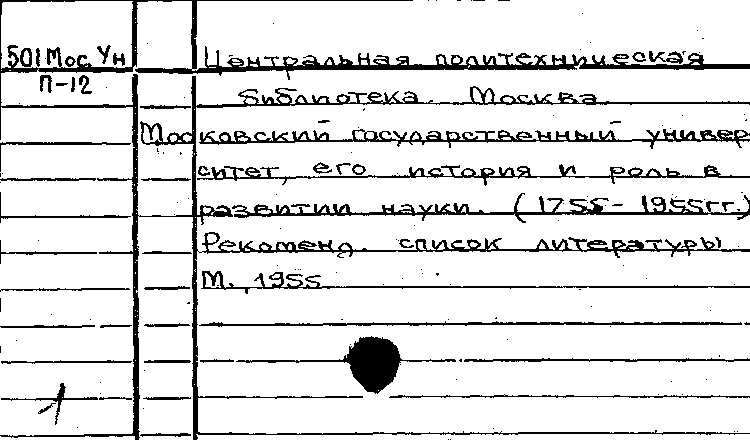 501 Мос Ун
П-12
Центральная политехническая
библиотека. Москва
Московский государственный универ
ситет, его история и роль в
развитии науки. (1755-1955гг.)
Рекоменд. список литературы
М., 1955
1